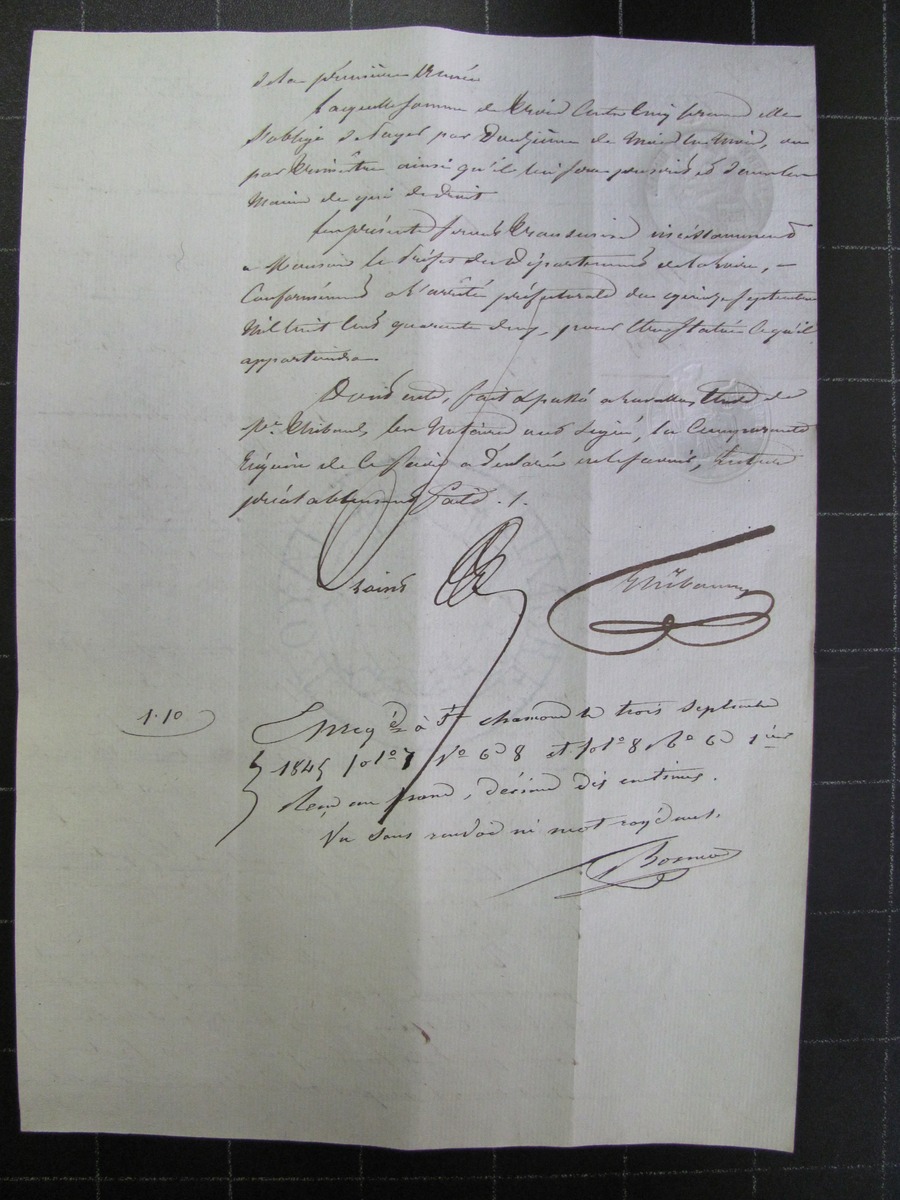 de la première année
Laquelle somme de trois cents cinq francs elle
s'oblige de payer par douzième de mois en mois, ou
par trimestre ainsi qu'il lui sera prescrit et dans les
mains de qui de droit
Les présentes seront transmises incessamment
a Monsieur le Préfet du département de la Loire, —
Conformément a l'arrêté préfectoral du quinze septembre
mil huit cent quarante deux, pour être statué ce qu'il
appartiendra
Dont acte, fait & passé a
Thibaud, les Notaires ont signé, la Comparante
requise de ce faire a déclaré ne le savoir, lecture
préalablement faite ./.
Thibaud
1.10
Enregé à St chamond le trois septembre
1845 fo 7 No 6 & 8 et fo 8 Ro 6 1ier
Reçu un franc, décime dix centimes.
Vu sans renvoi ni mot rayé nul.